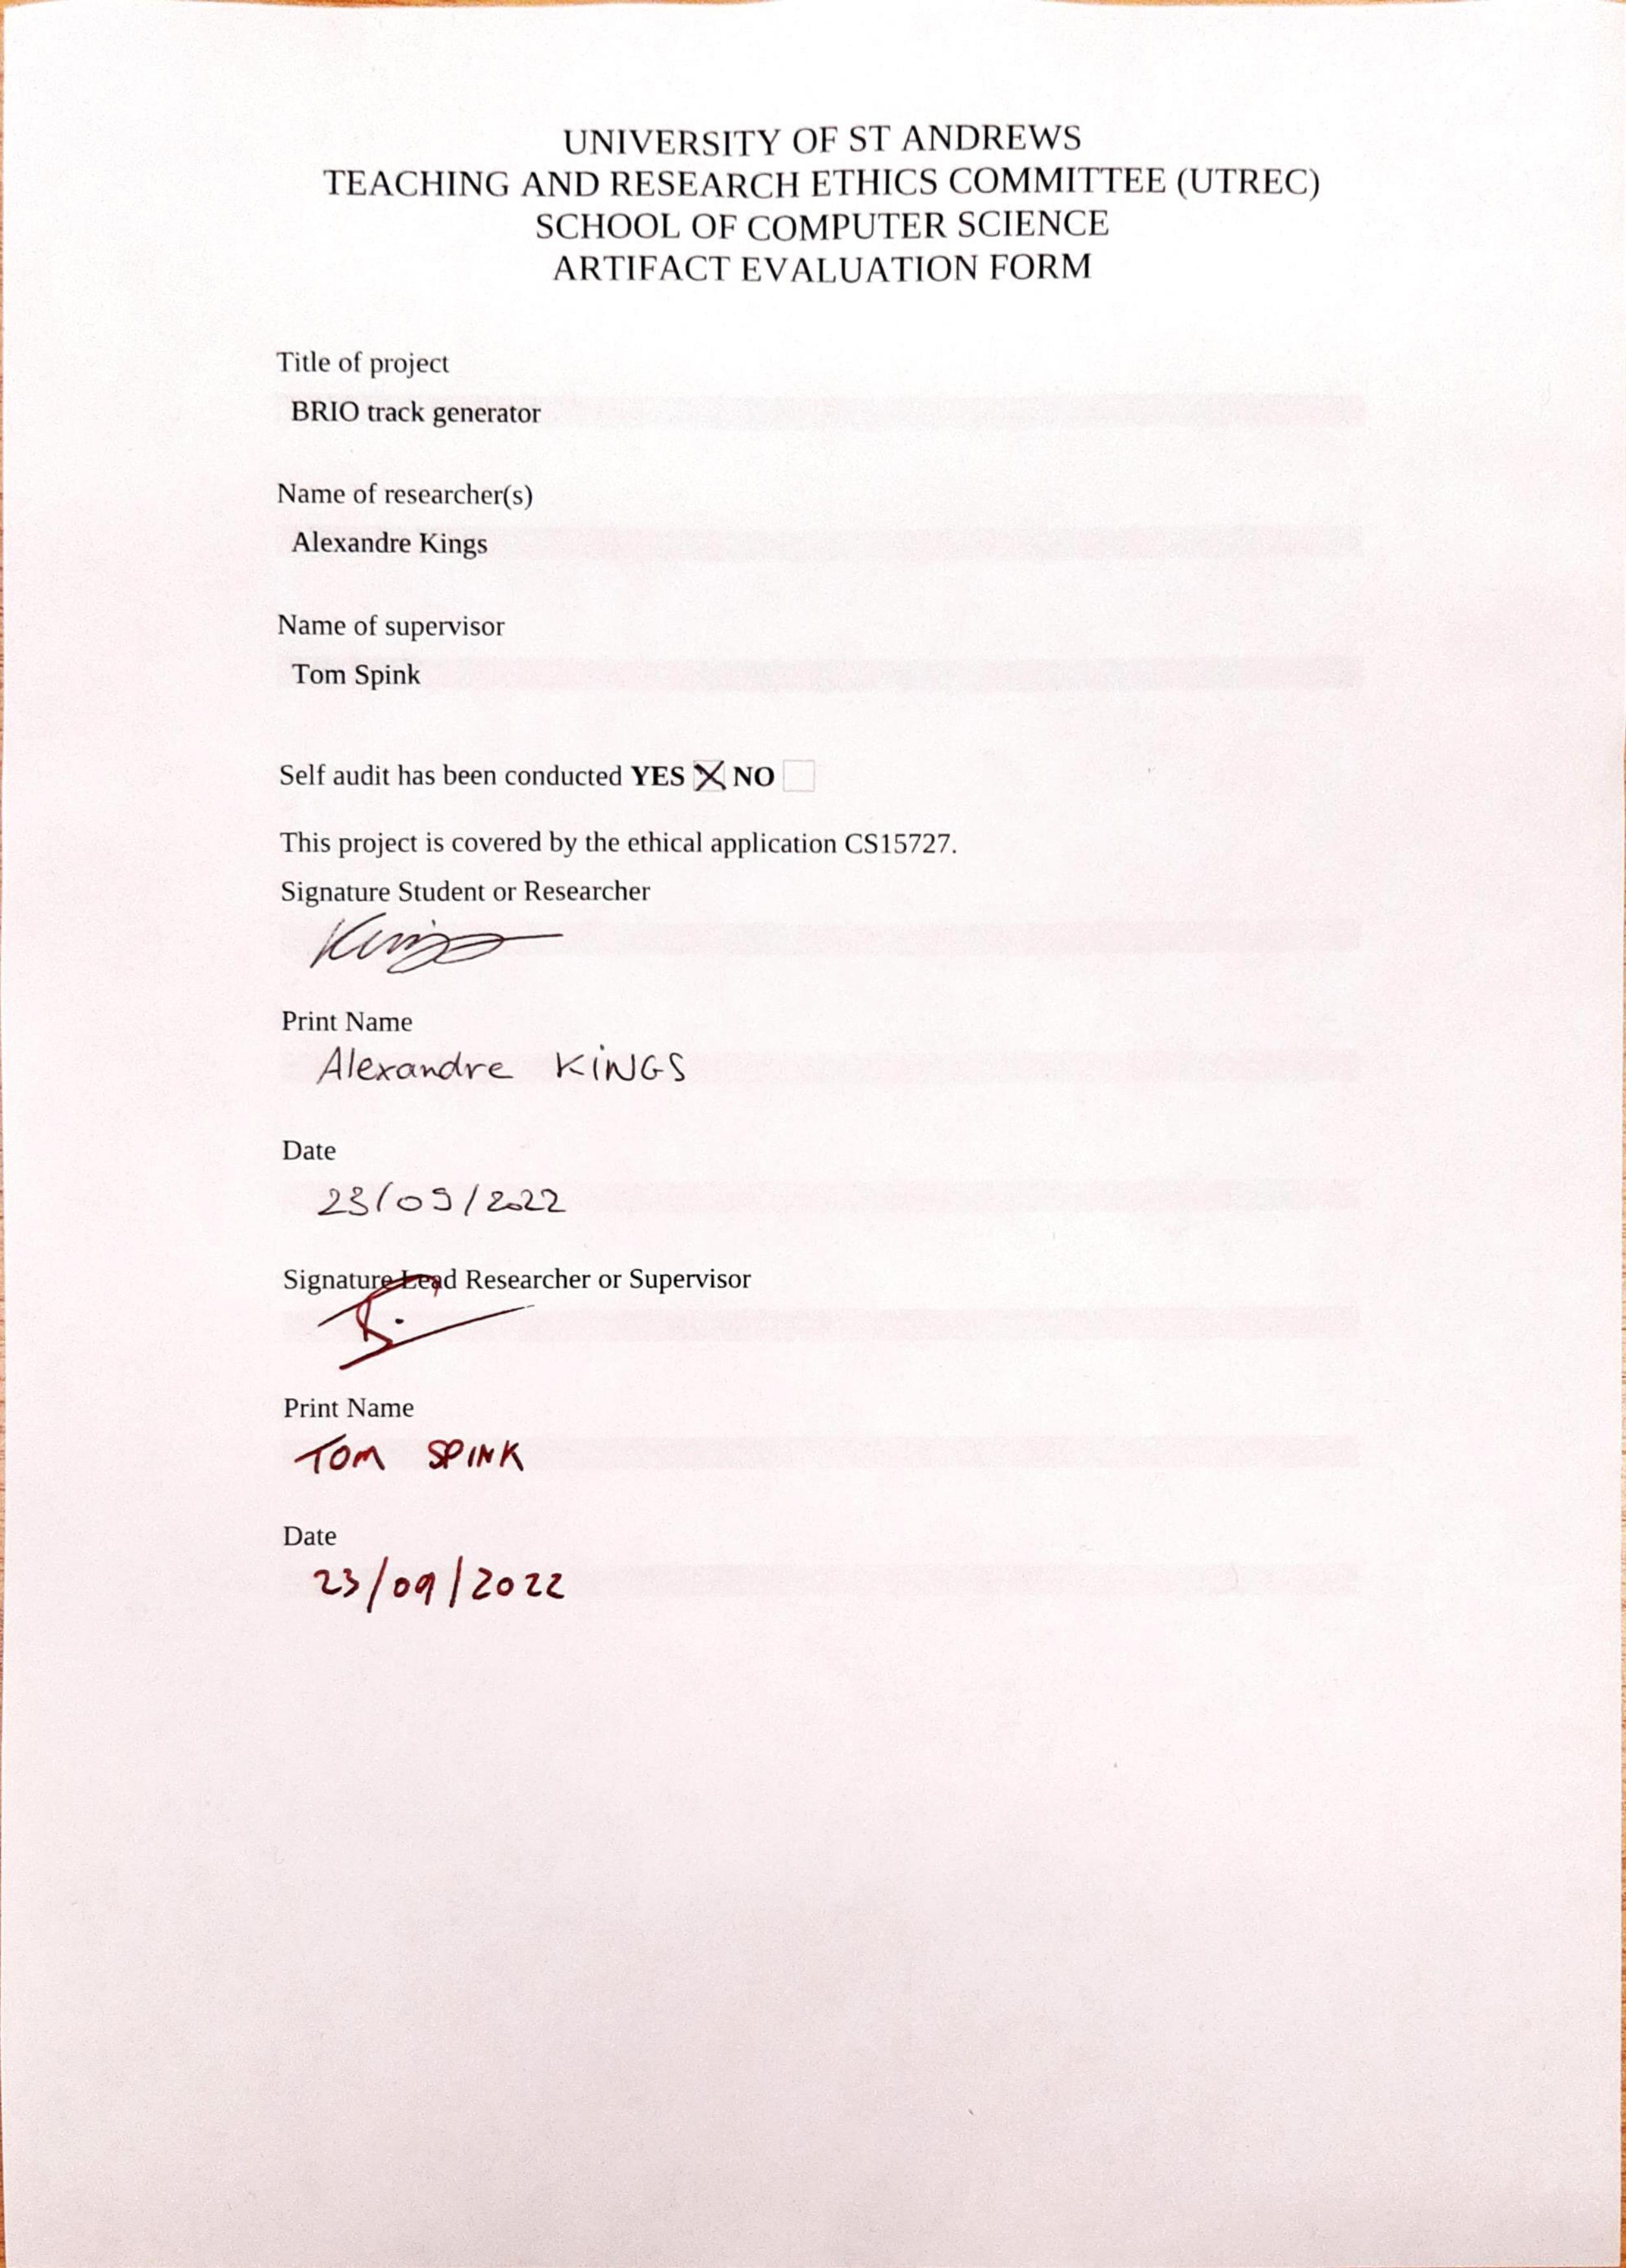 UNIVERSITY OF ST ANDREWS
TEACHING AND RESEARCH ETHICS COMMITTEE (UTREC)
SCHOOL OF COMPUTER SCIENCE
ARTIFACT EVALUATION FORM
Title of project
BRIO track generator
Name of researcher(s)
Alexandre Kings
Name of supervisor
Tom Spink
Self audit has been conducted YES X NO
This project is covered by the ethical application CS15727.
Signature Student or Researcher
Kings
Print Name
Alexandre KINGS
Date
23/09/2022
Signature Lead Researcher or Supervisor
Print Name
TOM SPINK
Date
23/09/2022